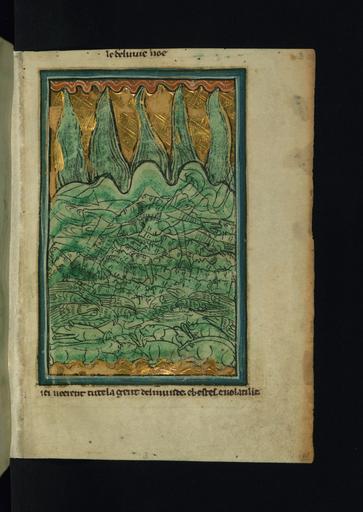 le deluuie noe
ici neerent tute la gent del munde. e bestes. e uolatilie